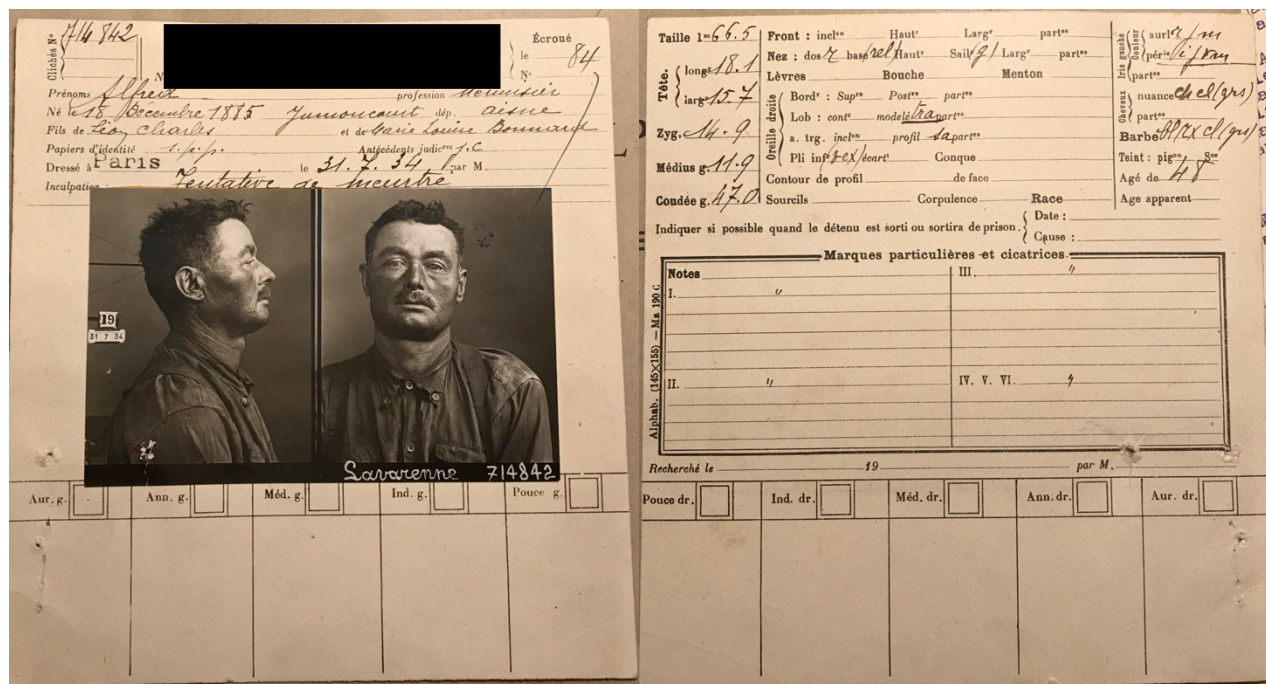 Clichés N° 714 842
Écroué
le 84
N°
Prénoms Alfred profession Menuisier
Né le 18 Décembre 1885 Jumoncourt dép. aisne
Fils de Léon Charles et de Marie Louise Bonnard
Papiers d'identité s.p.p. Antécédents judic^res j.C
Dressé à Paris le 31.7.34 par M.
Inculpation : Tentative de meurtre
19
31 7 34
Lavarenne 714842
Aur. g. Ann. g. Méd. g. Ind. g. Pouce g.
Taille 1^m 66.5
Tête.
long^r 18.1
larg^r 15.7
Zyg. 14.9
Médius g. 11.9
Coudée g. 47.0
Front : incl^on Haut^r Larg^r part^es
Nez : dos r base (rel) Haut^r Sail (g) Larg^r part^es
Lèvres Bouche Menton
Oreille droite
Bord^e : Sup^re Post^re part^es
Lob : cont^r modelé tra part^es
a. trg. incl^on profil sa part^es
Pli inf^r (vex) écart^t Conque
Contour de profil de face
Sourcils Corpulence Race
Iris gauche
Couleur
aur^le r/m
péri^e
part^es
Cheveux
nuance ch cl (grs)
part^es
Barbe
Teint : pig^on S^ce
Agé de 48
Age apparent
Indiquer si possible quand le détenu est sorti ou sortira de prison.
Date :
Cause :
Marques particulières et cicatrices.
Notes
I. "
II. "
III. "
IV. V. VI. "
Alphab. (145×155) — Ma 190 C
Recherché le 19 par M.
Pouce dr. Ind. dr. Méd. dr. Ann. dr. Aur. dr.